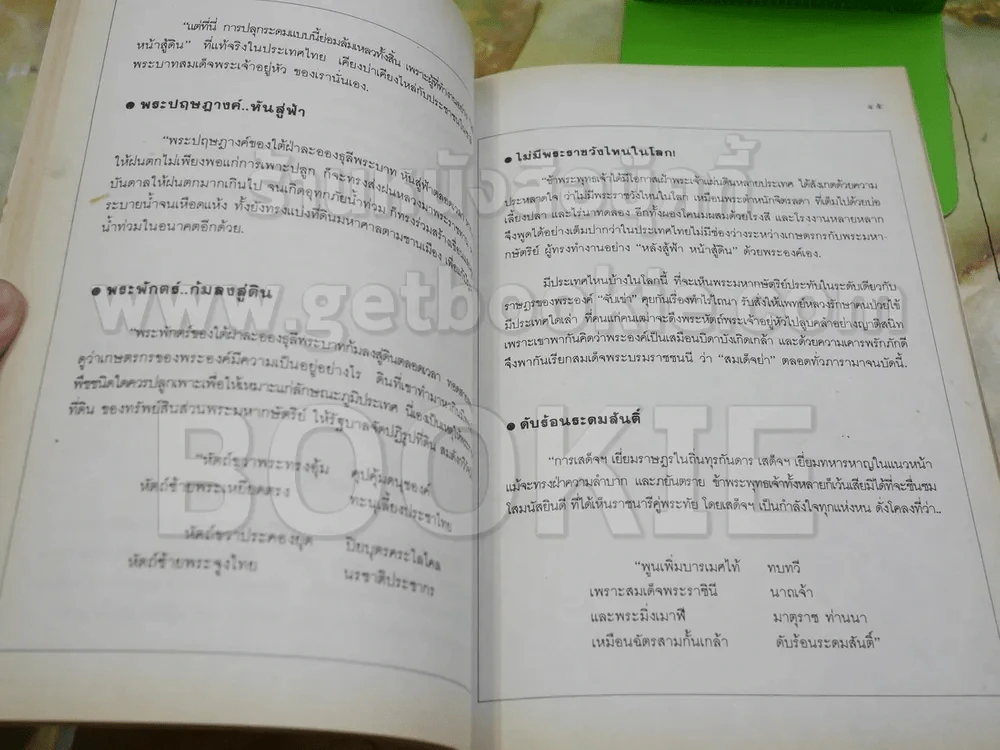 "แต่ที่นี่ การปลุกระดมแบบนี้ย่อมล้มเหลวทั้งสิ้น เพราะผู้ที่ทำงาน
หน้าสู้ดิน" ที่แท้จริงในประเทศไทย เคียงบ่าเคียงไหล่กับประชาชน
พระบาทสมเด็จพระเจ้าอยู่หัว ของเรานั่นเอง.
พระปฤษฎางค์..หันสู่ฟ้า
"พระปฤษฎางค์ของใต้ฝ่าละอองธุลีพระบาท หันสู่ฟ้าตลอดเวลา
ให้ฝนตกไม่เพียงพอแก่การเพาะปลูก ก็จะทรงส่งฝนหลวงมาพระราชทาน
บันดาลให้ฝนตกมากเกินไป จนเกิดอุทกภัยน้ำท่วม ก็ทรงร่วมสร้างเขื่อน
ระบายน้ำจนเหือดแห้ง ทั้งยังทรงแบ่งที่ดินมหาศาลตามชานเมือง เพื่อ
น้ำท่วมในอนาคตอีกด้วย.
พระพักตร์..ก้มลงสู่ดิน
"พระพักตร์ของใต้ฝ่าละอองธุลีพระบาทก้มลงสู่ดินตลอดเวลา
ดูว่าเกษตรกรของพระองค์มีความเป็นอยู่อย่างไร ดินที่เขาทำมาหากิน
พืชชนิดใดควรปลูกเพาะเพื่อให้เหมาะแก่ลักษณะภูมิประเทศ นี่เองเป็นเหตุให้
ที่ดิน ของทรัพย์สินส่วนพระมหากษัตริย์ ให้รัฐบาลจัดปฏิรูปที่ดิน
"หัตถ์ขวาพระทรงอุ้ม
หัตถ์ซ้ายพระเหยียดตรง ทะนุเลี้ยงประชาไทย
หัตถ์ขวาประคองยุด
หัตถ์ซ้ายพระจูงไทย นรชาติประชากร
๑๕
ไม่มีพระราชวังไหนในโลก!
"ข้าพระพุทธเจ้าได้มีโอกาสเฝ้าพระเจ้าแผ่นดินหลายประเทศ ได้สังเกตด้วยความ
ประหลาดใจ ว่าไม่มีพระราชวังไหนในโลก เหมือนพระตำหนักจิตรลดา ที่เต็มไปด้วยบ่อ
เลี้ยงปลา และไร่นาทดลอง อีกทั้งผองโคนมผสมด้วยโรงสี และโรงงานหลายหลาก
จึงพูดได้อย่างเต็มปากว่าในประเทศไทยไม่มีช่องว่างระหว่างเกษตรกรกับพระมหา-
กษัตริย์ ผู้ทรงทำงานอย่าง "หลังสู้ฟ้า หน้าสู้ดิน" ด้วยพระองค์เอง.
มีประเทศไหนบ้างในโลกนี้ ที่จะเห็นพระมหากษัตริย์ประทับในระดับเดียวกับ
ราษฎรของพระองค์ "จับเข่า" คุยกันเรื่องทำไร่ไถนา รับสั่งให้แพทย์หลวงรักษาคนป่วยไข้
มีประเทศใดเล่า ที่คนแก่คนเฒ่าจะดึงพระหัตถ์พระเจ้าอยู่หัวไปลูบคลำอย่างญาติสนิท
เพราะเขาพากันคิดว่าพระองค์เป็นเสมือนบิดาบังเกิดเกล้า และด้วยความเคารพรักภักดี
จึงพากันเรียกสมเด็จพระบรมราชชนนี ว่า "สมเด็จย่า" ตลอดทั่วภารามาจนบัดนี้.
ดับร้อนระดมสันติ์
"การเสด็จฯ เยี่ยมราษฎรในถิ่นทุรกันดาร เสด็จฯ เยี่ยมทหารหาญในแนวหน้า
แม้จะทรงฝ่าความลำบาก และภยันตราย ข้าพระพุทธเจ้าทั้งหลายก็เว้นเสียมิได้ที่จะชื่นชม
โสมนัสยินดี ที่ได้เห็นราชนารีคู่พระทัย โดยเสด็จฯ เป็นกำลังใจทุกแห่งหน ดั่งโคลงที่ว่า..
"พูนเพิ่มบารเมศไท้ ทบทวี
เพราะสมเด็จพระราชินี นาถเจ้า
และพระมิ่งเมาฬี มาตุราช ท่านนา
เหมือนฉัตรสามกั้นเกล้า ดับร้อนระดมสันติ์"
www.getbookie.com
BOOKIE